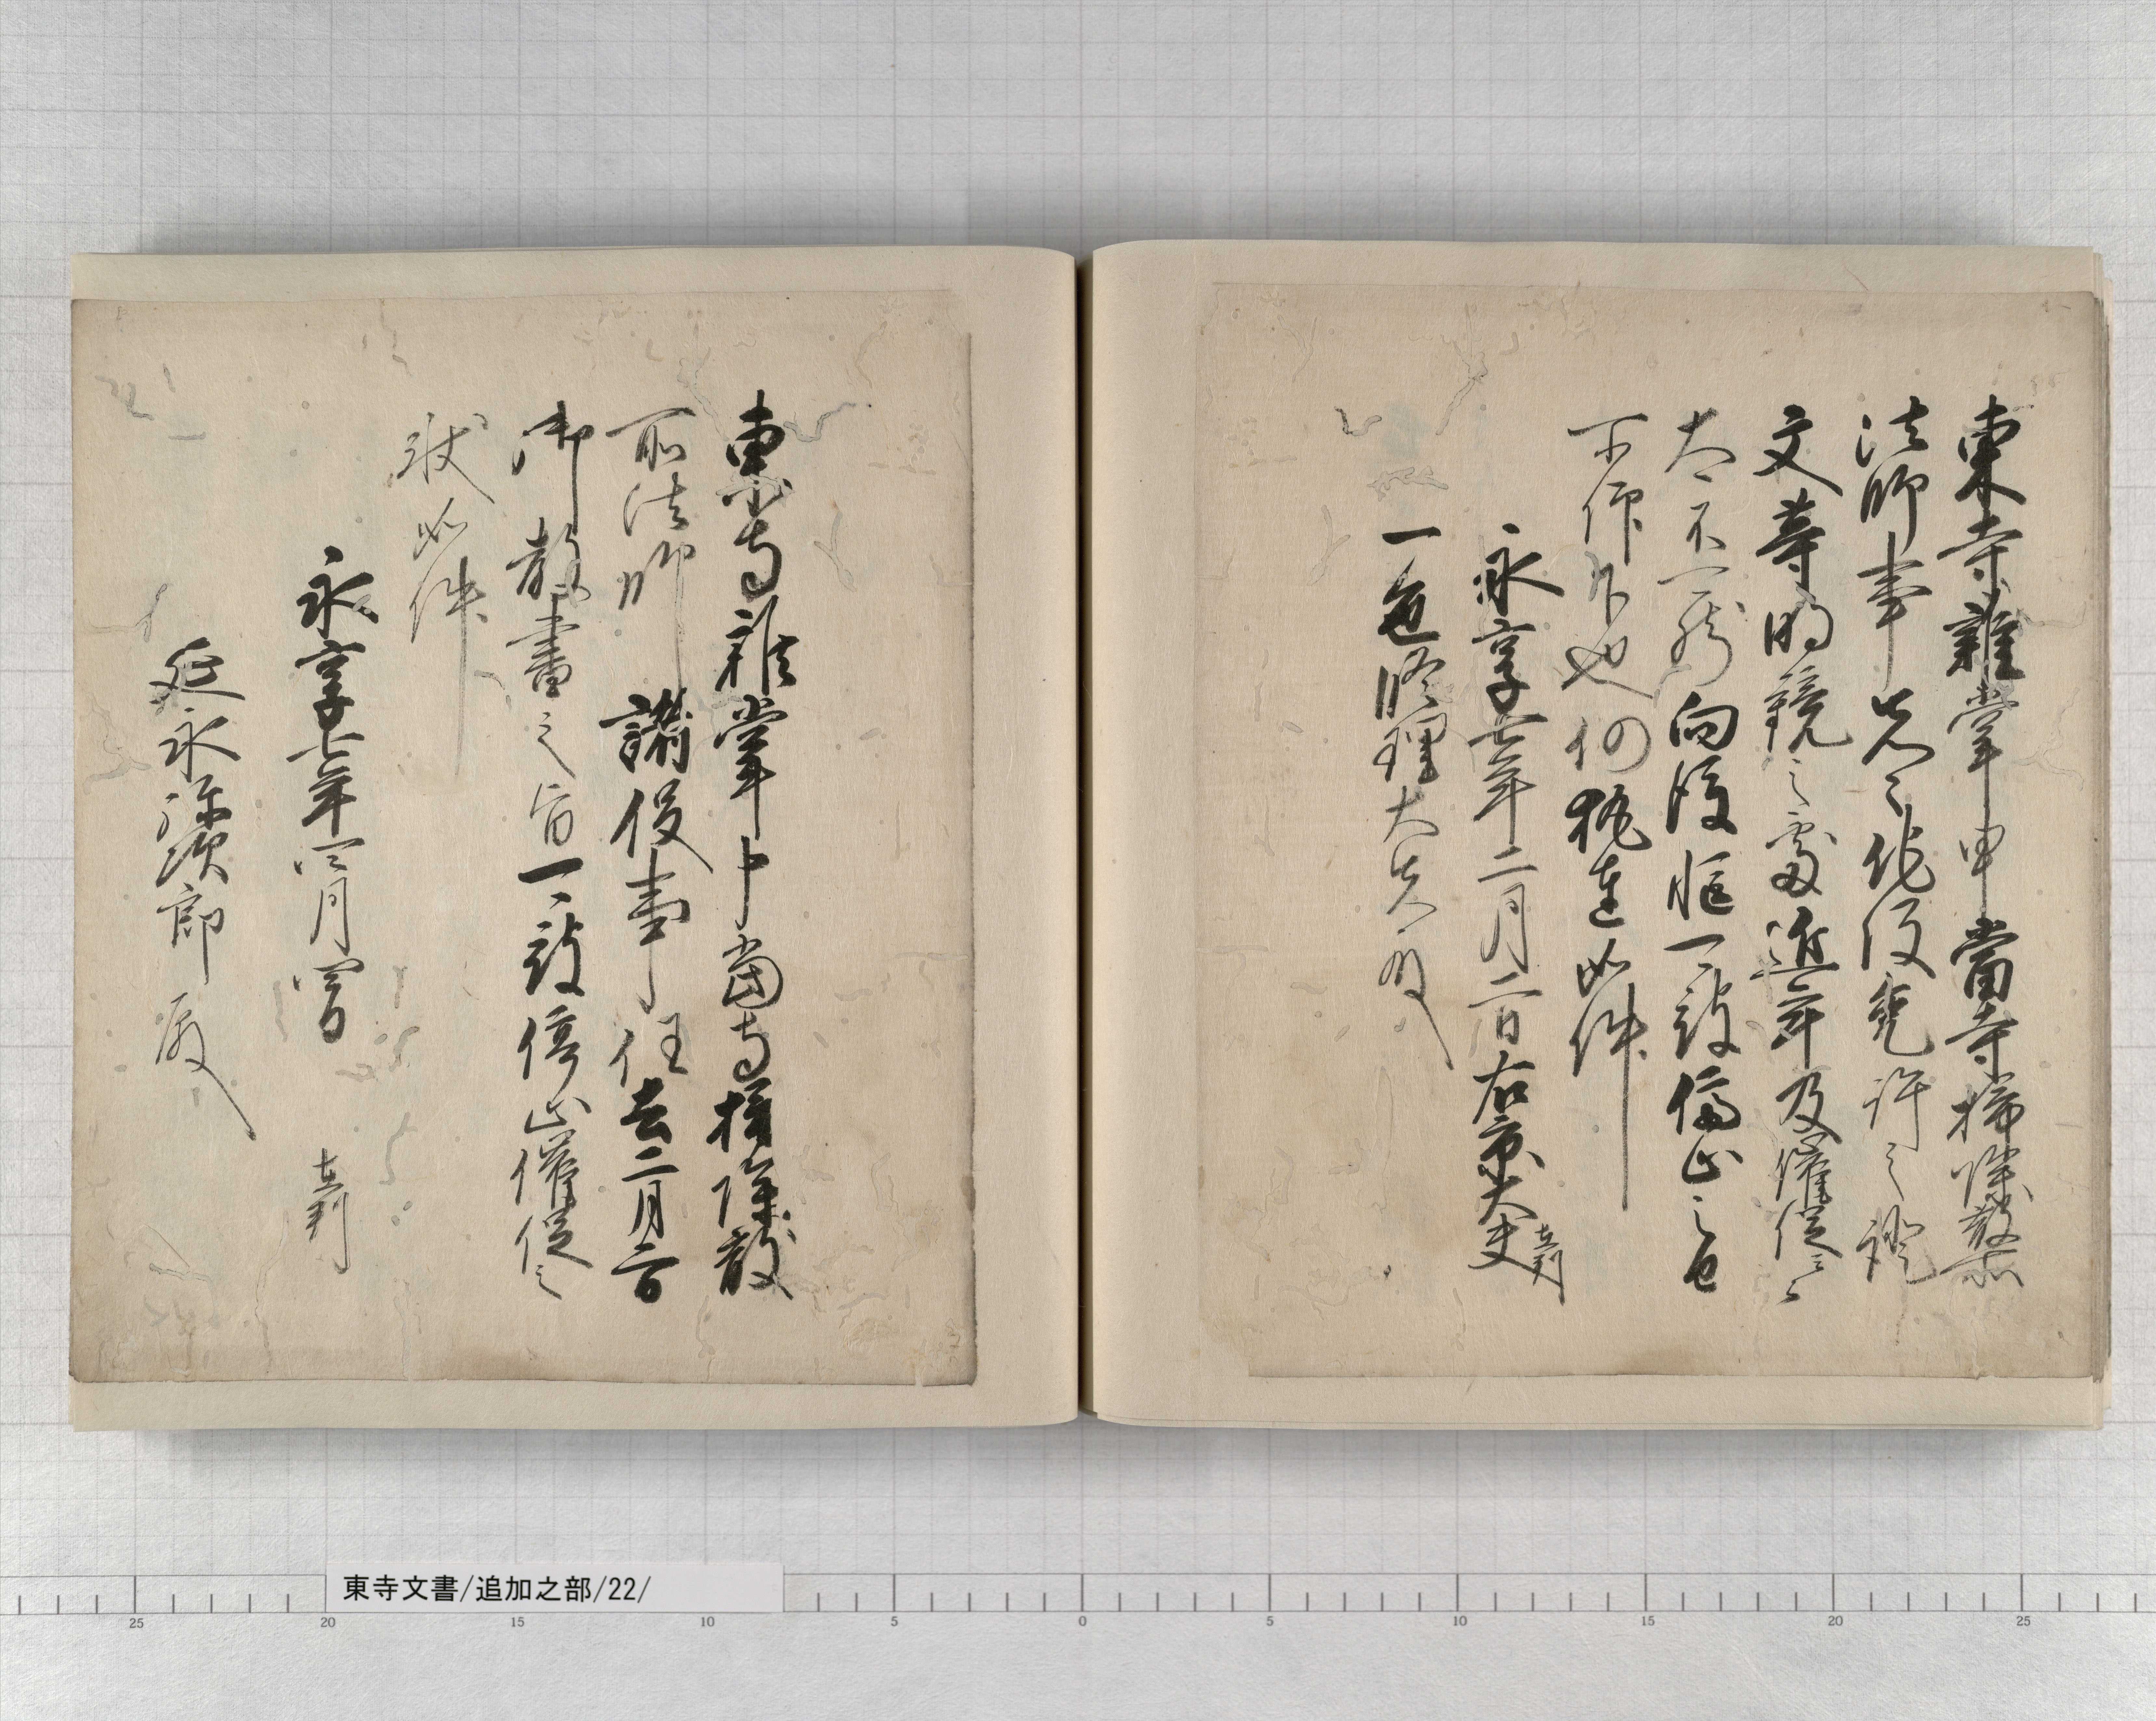 東寺雑掌申当寺掃除散所
法師事先々諸役免許之證
文等明鏡之處近年及催促云々
太不可然向後臨時課役停止之由
所被仰下也仍執達如件
永享七年二月二日右京大夫在判
一色修理大夫殿
東寺雑掌申当寺掃除散
所法師諸役事任去二月二日
御教書之旨可被停止催促之
状如件
永享七年四月四日
在判
延永弥次郎殿
東寺文書/追加之部/22/
25 20 15 10 5 0 5 10 15 20 25